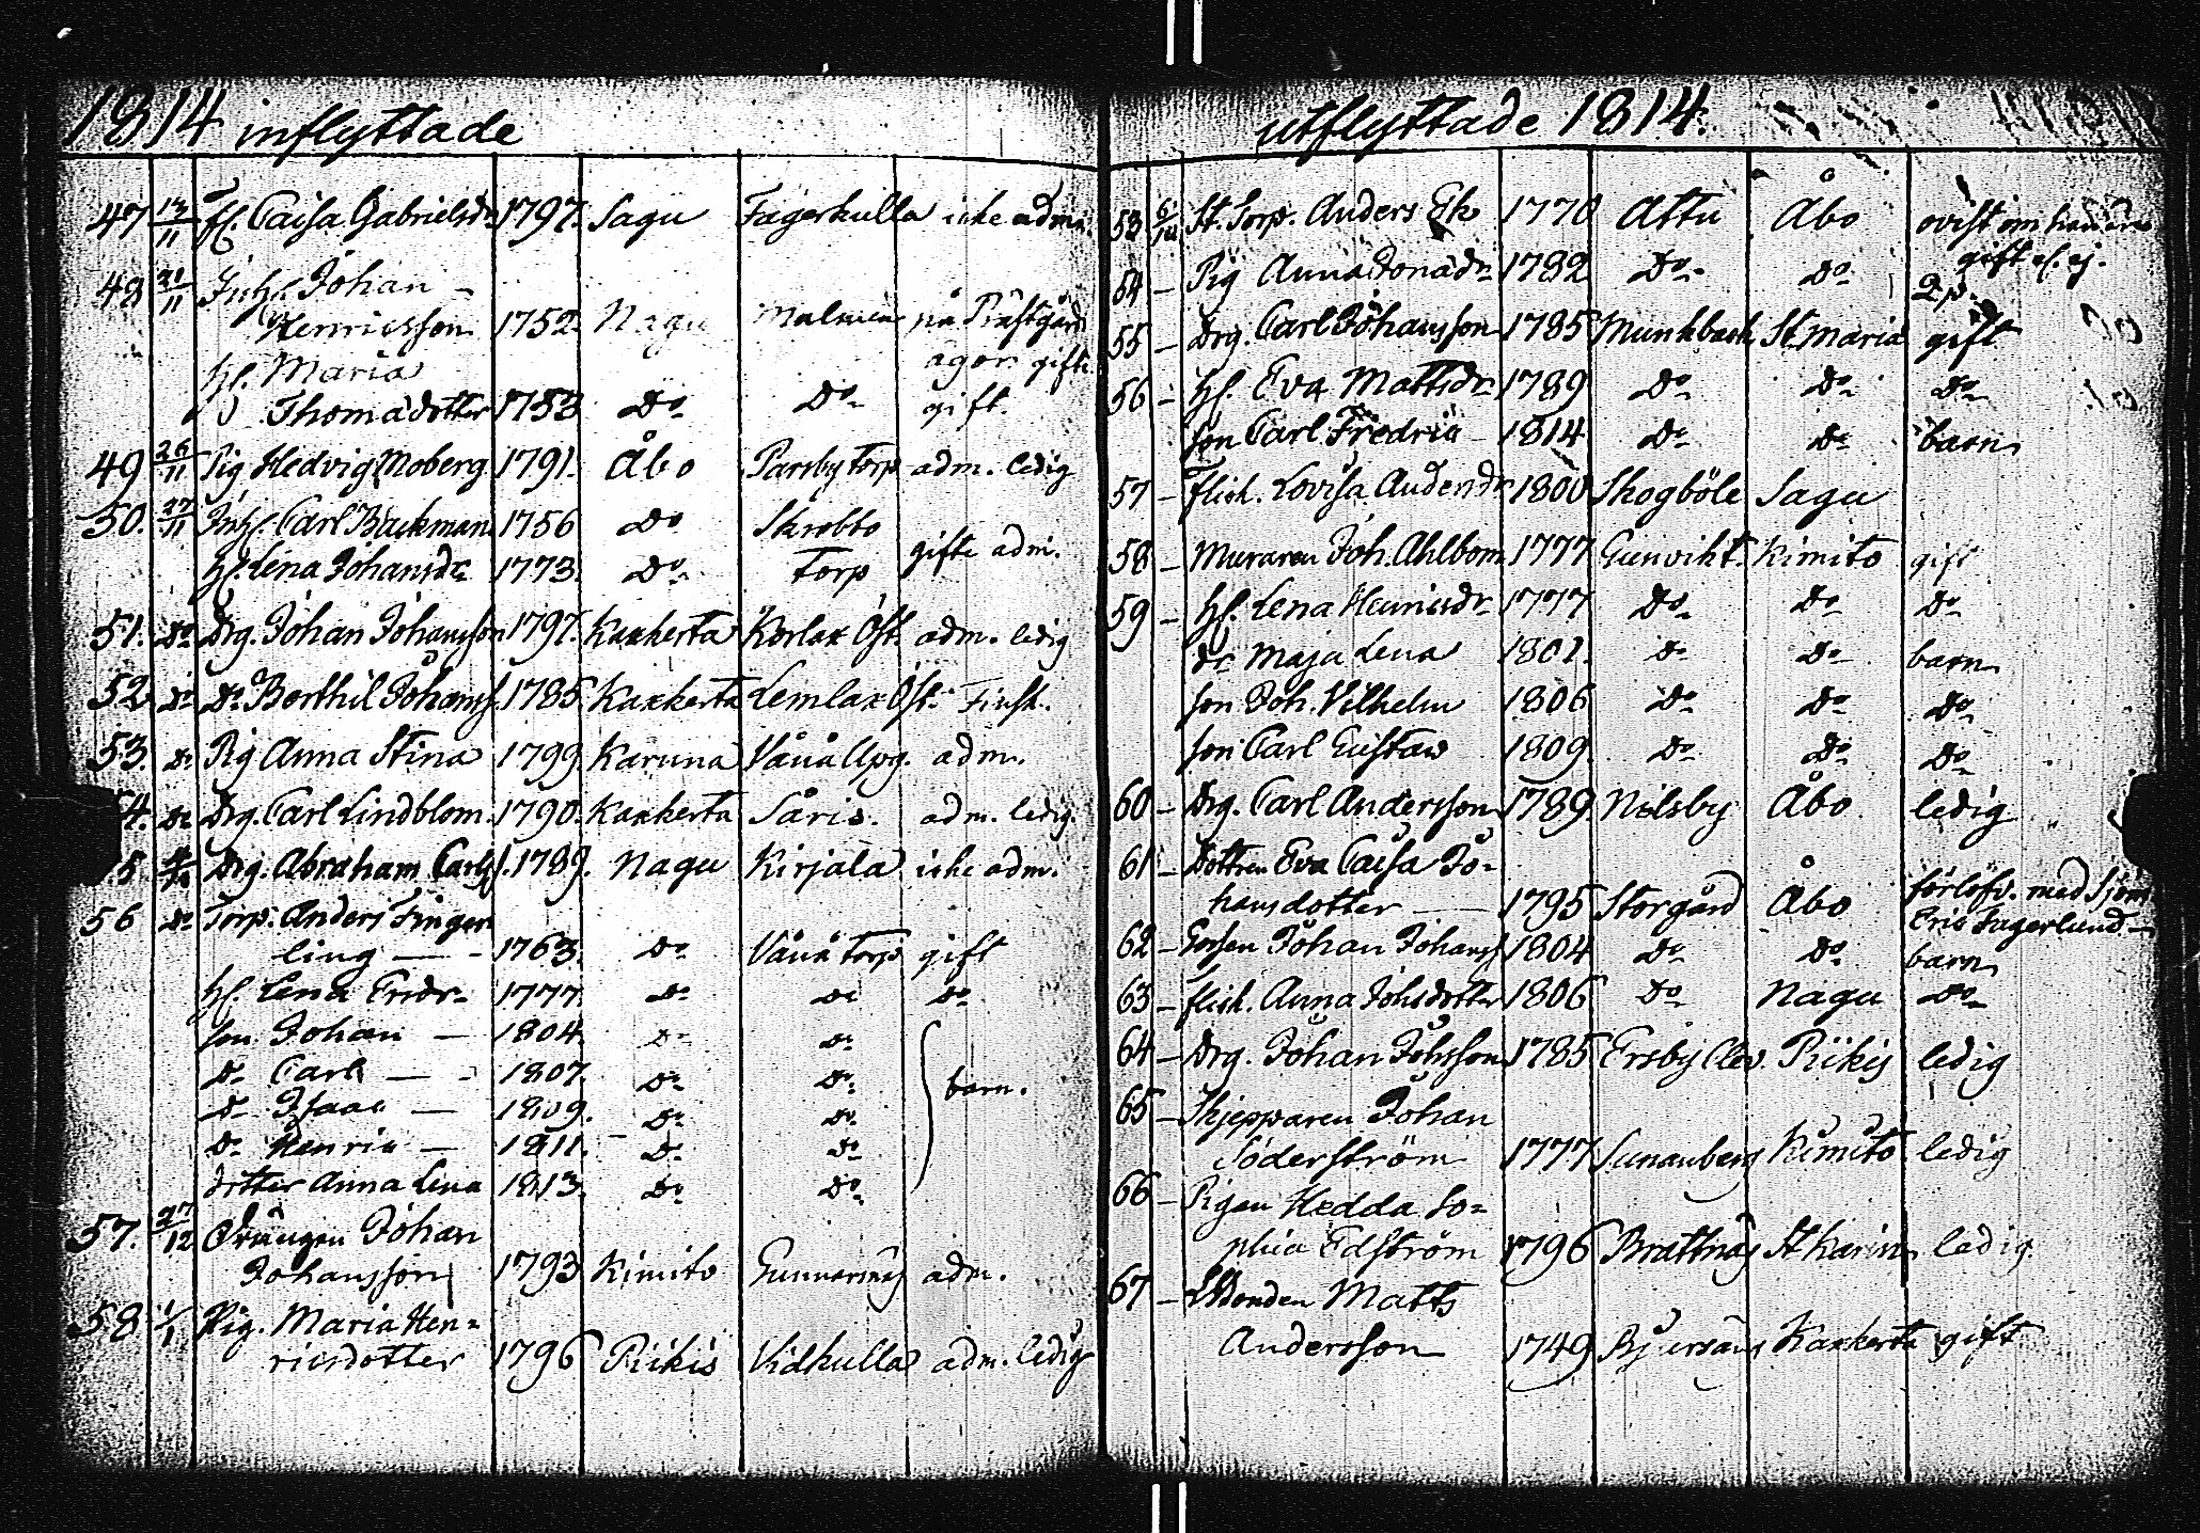 1814 inflyttade
47 13/11 fl. Caisa Gabrielsdr 1797. Sagu Fagerkulla icke adm.
48 21/11 Inh. Johan –
Henricsson 1752. Nagu Malmen på Prästgård
hf. Maria ägor gifte
Thomädotter 1753 Do Do gift.
49 26/11 Pig Hedvig Moberg 1791. Åbo Parsby Torp adm. ledig
50. 27/11 Inh. Carl Backman 1756 Do Skrobbo
hf. Lena Johansdr 1773. Do Torp gifte adm.
51. Do Drg. Johan Johansson 1797. Kakkerta Korlax Öst. adm. ledig
52 Do Do Berthil Johanss. 1785. Kakkerta Lemlax Öst. Finsk.
53. Do Pig Anna Stina 1799. Karuna Vånå Upg. adm.
4. Do Drg. Carl Lindblom. 1790. Kakkerta Såris. adm. ledig.
5 Drg. Abraham Carlss. 1789. Nagu Kirjala icke adm.
56 Do Torp. Anders Finger
ling — - 1763. Do Vånå Torp gift
hf. Lena Ersdr 1777. Do Do Do
son Johan — 1804. Do Do
Do Carl — - 1807. Do Do barn.
Do Isaac — 1809. Do Do
Do Henric — 1811. Do Do
dotter Anna Lena 1813. Do Do
57. 27/12 Drängen Johan
Johansson 1793 Kimito Gunnarsnäs adm.
58 1/1 Pig. Maria Hen=
ricsdotter 1796 Piikis Vidkulla adm. ledig
utflyttade 1814.
53 6/10 St. Torp. Anders Ek 1770 Attu Åbo ovist om han är
gift el. ej.
54 – Pig Anna Jonadr 1782 Do Do
55 – Drg. Carl Johansson 1785 Munkback St. Maria gift
56 – hf. Eva Mattsdr 1789 Do Do Do
son Carl Fredric 1814 Do Do barn
57 – Flick. Lovisa Andersdr 1800 Skogböle Sagu
58 – Muraren Joh. Ahlbom 1777 Gunvikt. Kimito gift
59 – hf. Lena Henricsdr 1777 Do Do Do
dr Maja Lena 1801. Do Do barn
son Joh. Vilhelm 1806 Do Do Do
son Carl Gustaw 1809. Do Do Do
60 – Drg. Carl Andersson 1789. Nilsby Åbo ledig
61 – Dottren Eva Caisa Jo=
hansdotter — 1795 Storgård Åbo förlofv. med Sjöm
Eric Fagerlund –
62 – Gossen Johan Johanss 1804 Do Do barn
63 – flick. Anna Johsdotter 1806 Do Nagu Do
64 – Drg. Johan Johsson 1785 Ersby Clev. Piikis ledig
65 – Skjepparen Johan
Söderström 1777 Sunnanberg Kimito ledig
66 – Pigan Hedda So=
phia Edström 1796 Brattnäs St Karins ledig
67 – Bonden Matts
Andersson 1749 Bjursäng Kakkerta gift